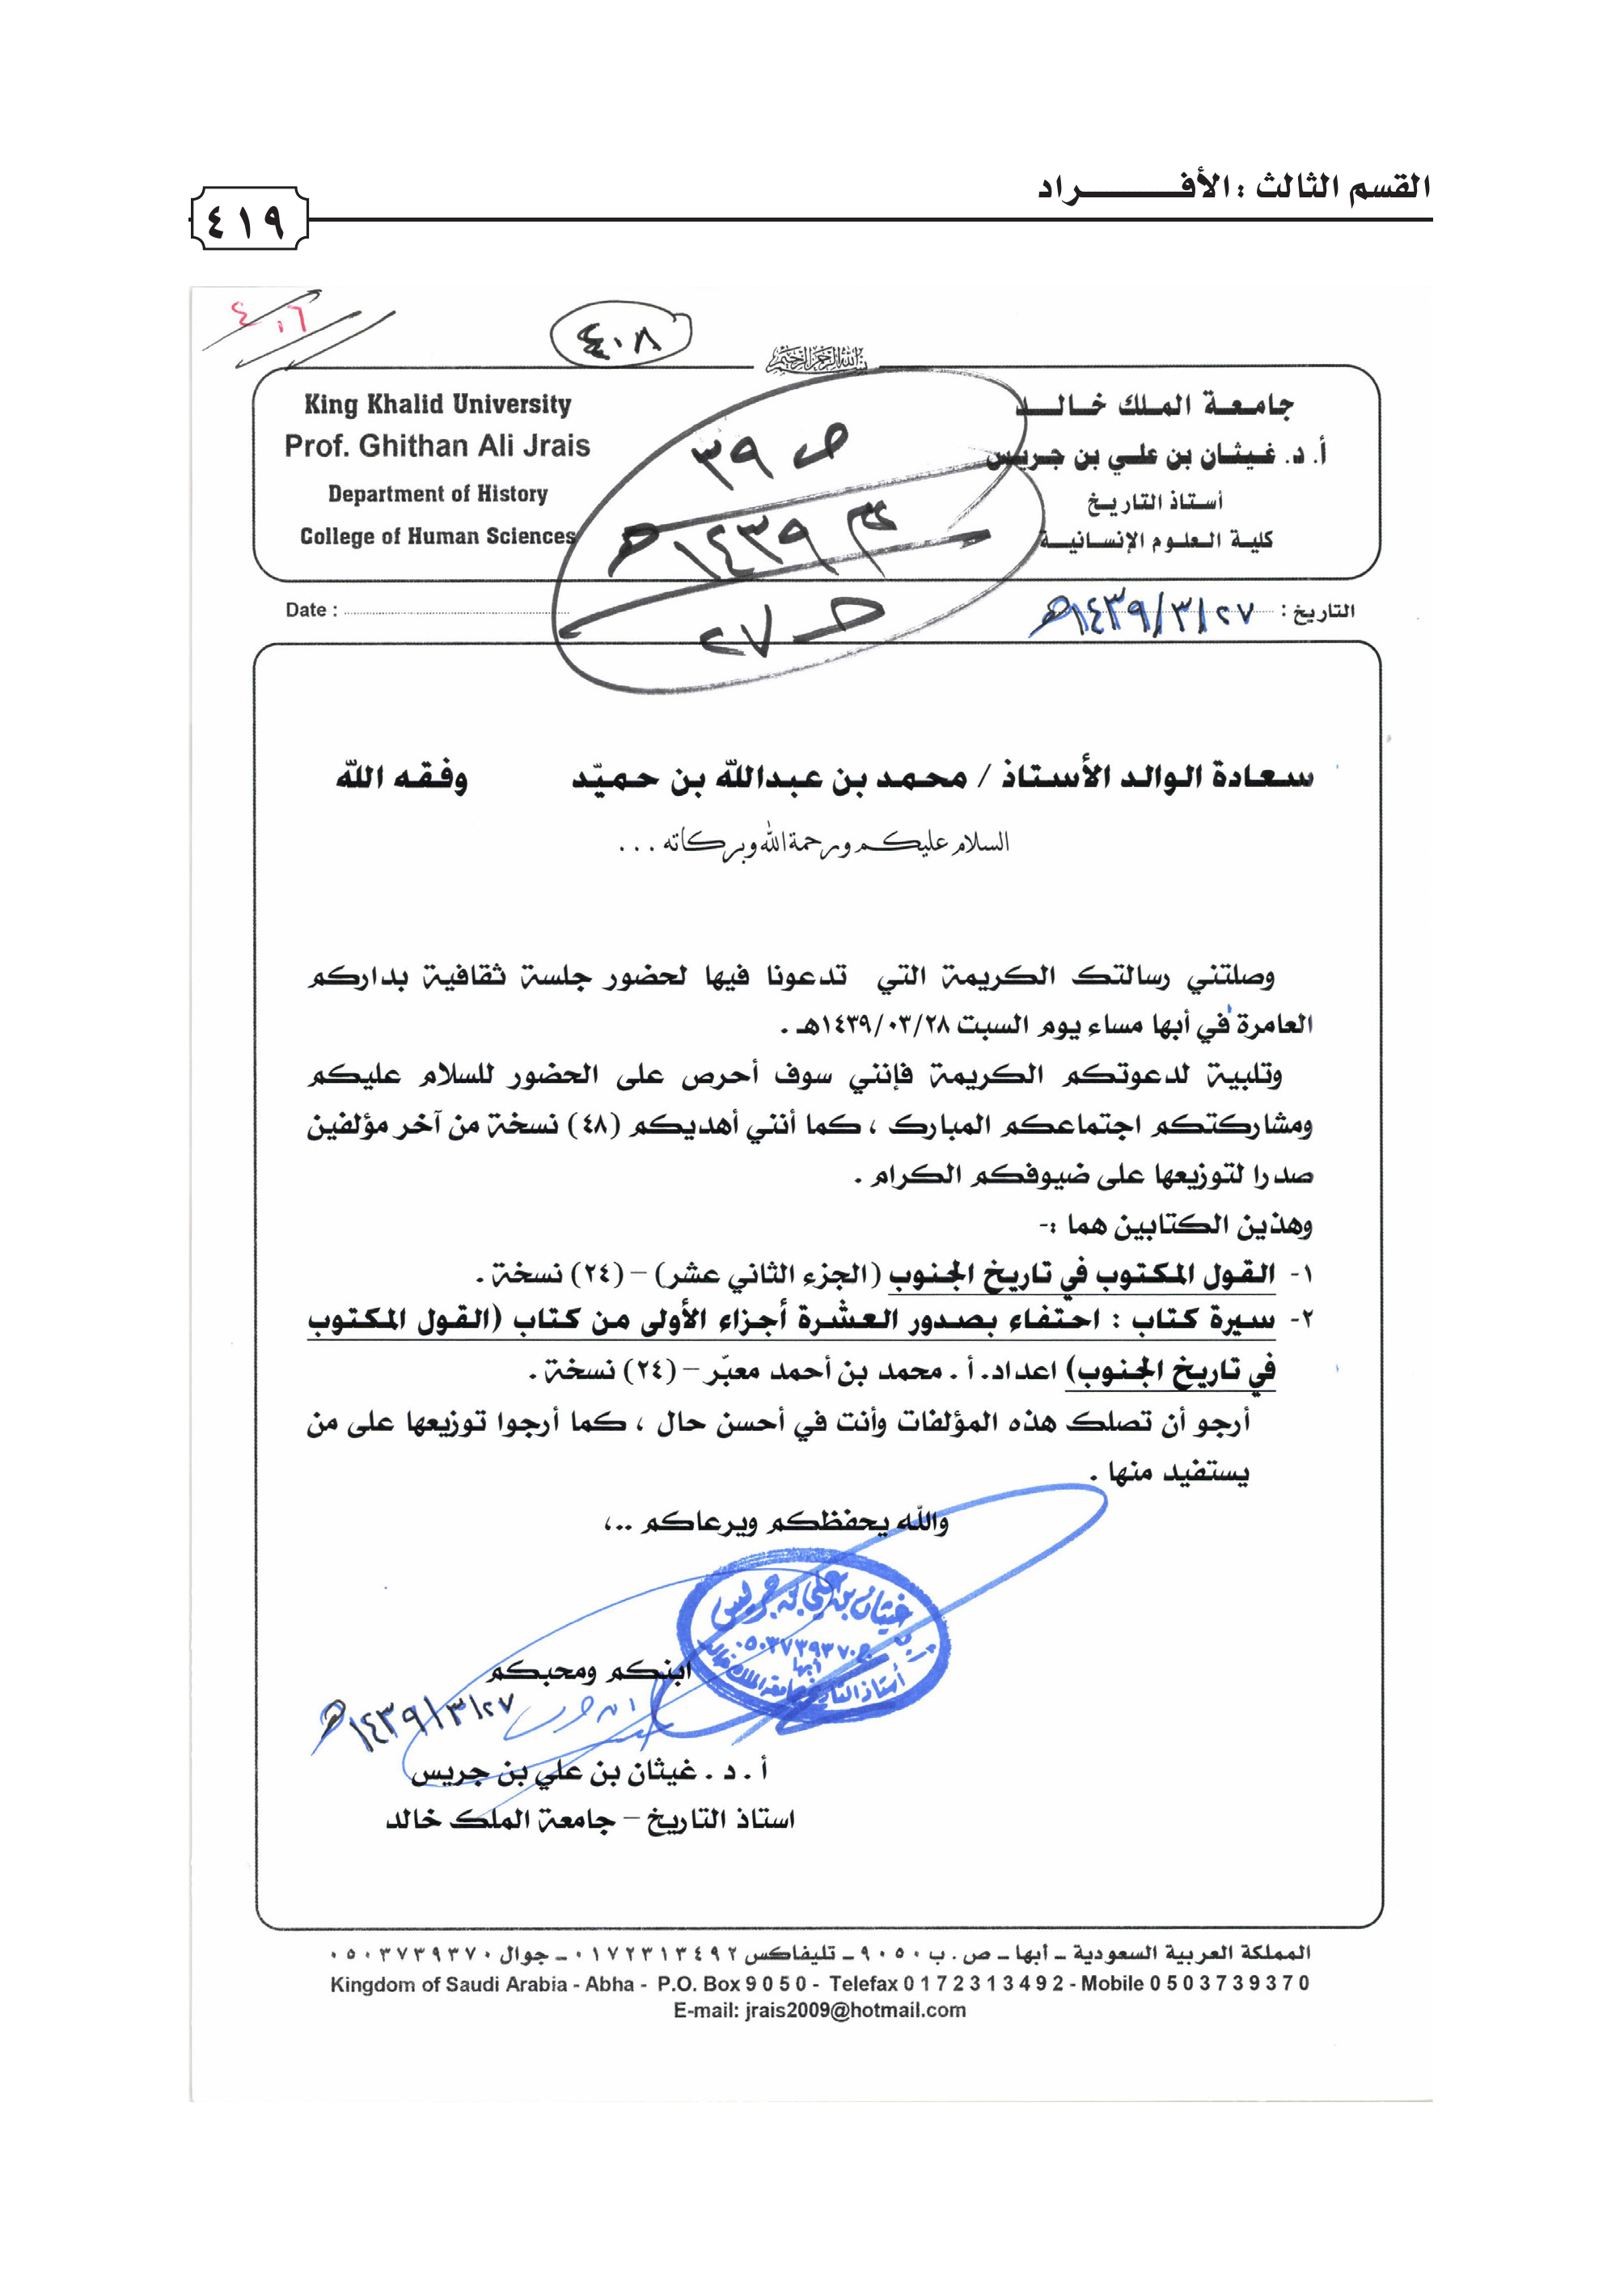 القسم الثالث : الأفـــــــراد
٤١٩
٤٠٦
٤٠٨
بسم الله الرحمن الرحيم
King Khalid University
Prof. Ghithan Ali Jrais
Department of History
College of Human Sciences
جامعة الملك خالد
أ. د. غيثان بن علي بن جريس
أستاذ التاريخ
كلية العلوم الإنسانية
ص ٣٩
١٤٣٩هـ
٢٧
Date :
التاريخ : ٢٧/٣/١٤٣٩هـ
سعادة الوالد الأستاذ / محمد بن عبدالله بن حميّد وفقه الله
السلام عليكم ورحمة الله وبركاته ...
وصلتني رسالتك الكريمة التي تدعونا فيها لحضور جلسة ثقافية بداركم
العامرة في أبها مساء يوم السبت ١٤٣٩/٠٣/٢٨هـ .
وتلبية لدعوتكم الكريمة فإنني سوف أحرص على الحضور للسلام عليكم
ومشاركتكم اجتماعكم المبارك ، كما أنني أهديكم (٤٨) نسخة من آخر مؤلفين
صدرا لتوزيعها على ضيوفكم الكرام .
وهذين الكتابين هما :-
١- القول المكتوب في تاريخ الجنوب (الجزء الثاني عشر) – (٢٤) نسخة .
٢- سيرة كتاب : احتفاء بصدور العشرة أجزاء الأولى من كتاب (القول المكتوب
في تاريخ الجنوب) اعداد. أ . محمد بن أحمد معبّر – (٢٤) نسخة .
أرجو أن تصلك هذه المؤلفات وأنت في أحسن حال ، كما أرجوا توزيعها على من
يستفيد منها .
والله يحفظكم ويرعاكم ..،
غيثان بن علي بن جريس
٠٥٠٣٧٣٩٣٧٠
أبها
أستاذ التاريخ بجامعة الملك خالد
ابنكم ومحبكم
٢٧/٣/١٤٣٩هـ
أ . د . غيثان بن علي بن جريس
استاذ التاريخ – جامعة الملك خالد
المملكة العربية السعودية – أبها – ص . ب ٩٠٥٠ – تليفاكس ٠١٧٢٣١٣٤٩٢ – جوال ٠٥٠٣٧٣٩٣٧٠
Kingdom of Saudi Arabia - Abha - P.O. Box 9 0 5 0 - Telefax 0 1 7 2 3 1 3 4 9 2 - Mobile 0 5 0 3 7 3 9 3 7 0
E-mail: jrais2009@hotmail.com